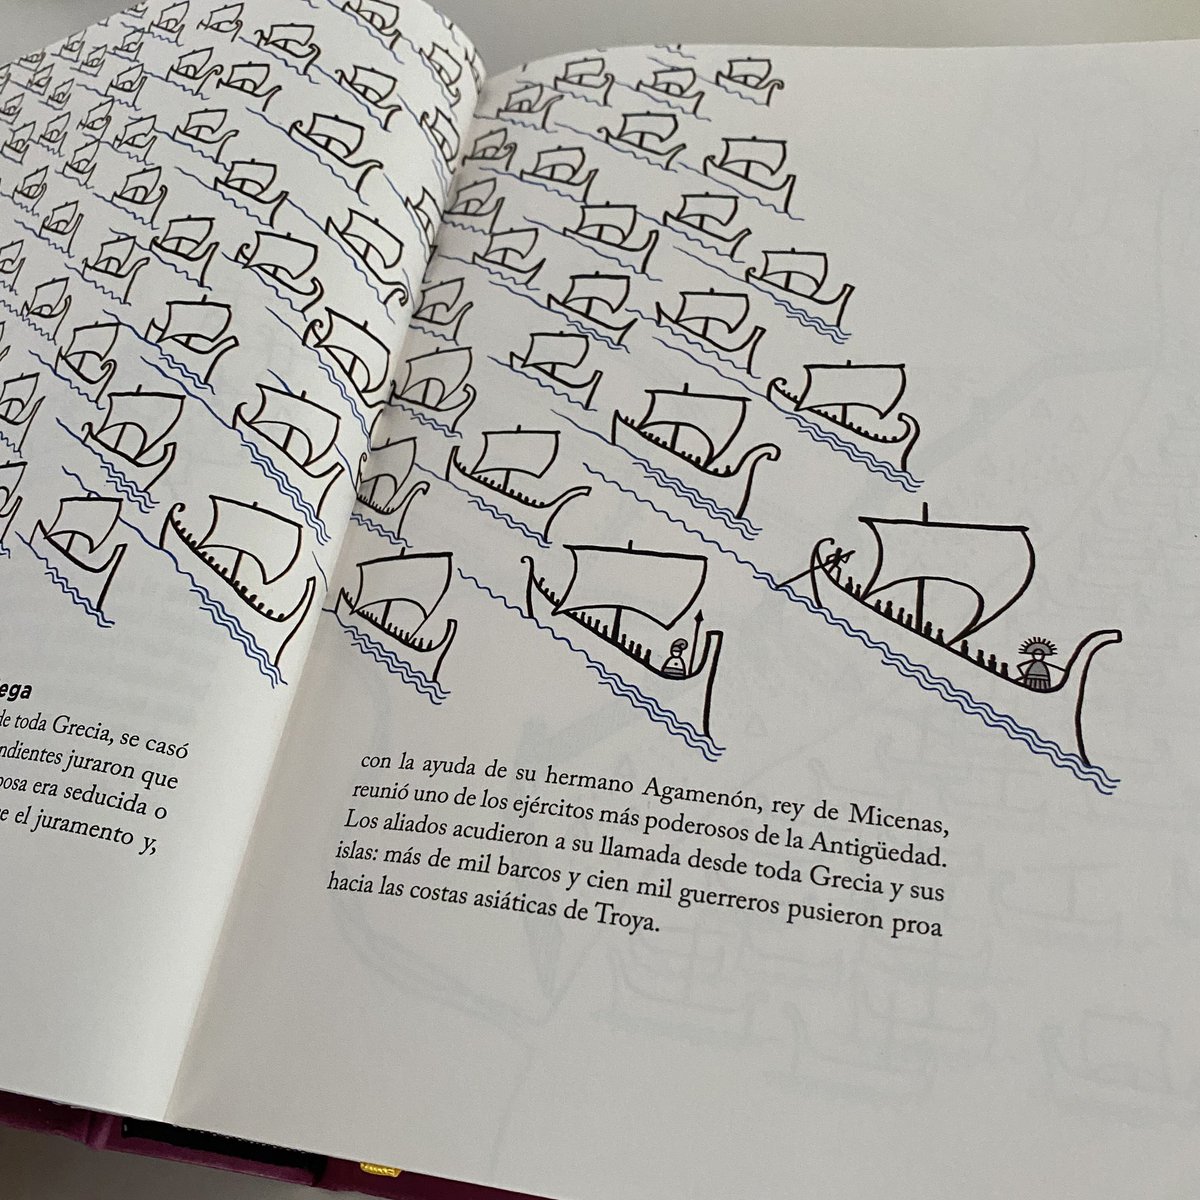 de toda Grecia, se casó
juraron que
era seducida o
el juramento y,
con la ayuda de su hermano Agamenón, rey de Micenas,
reunió uno de los ejércitos más poderosos de la Antigüedad.
Los aliados acudieron a su llamada desde toda Grecia y sus
islas: más de mil barcos y cien mil guerreros pusieron proa
hacia las costas asiáticas de Troya.